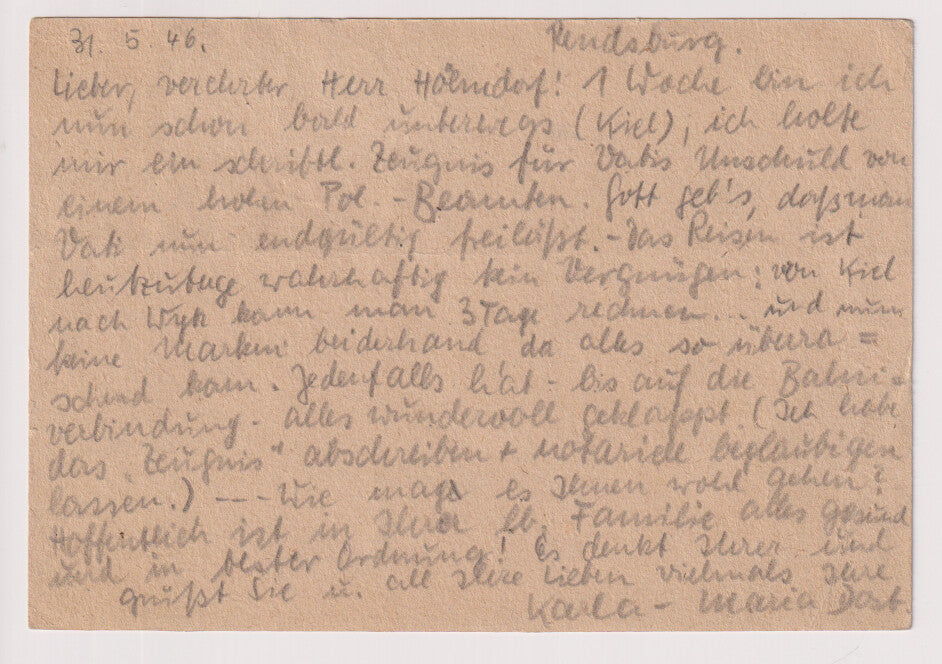 31. 5. 46. Rendsburg.
Lieber, verehrter Herr! 1 Woche bin ich
nun schon bald unterwegs (Kiel), ich holte
mir ein schriftl. Zeugnis für Vatis Unschuld von
einem hohen Pol.-Beamten. Gott geb's, daß man
Vati nun endgültig freiläßt.-Das Reisen ist
heutzutage wahrhaftig kein Vergnügen: von Kiel
nach Wyk kann man 3 Tage rechnen... und nun
keine Marken beiderhand da alles so überra=
schend kam. Jedenfalls hat - bis auf die Bahn-
verbindung - alles wundervoll geklappt (Ich habe
das "Zeugnis" abschreiben + notariell beglaubigen
lassen.) --- Wie mag es Ihnen wohl gehen?
Hoffentlich ist in Ihrer lb. Familie alles gesund
und in bester Ordnung! Es denkt Ihrer und
grüßt Sie u. all Ihre Lieben vielmals Ihre
Karla-Maria